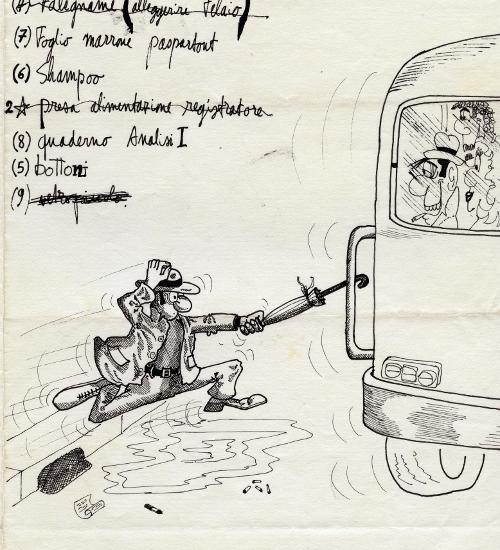 (4) Falegname (alleggerire Telaio)
(7) Foglio marrone paspartout
(6) Shampoo
2☆ presa alimentazione registratore
(8) quaderno Analisi I
(5) bottoni
(9)